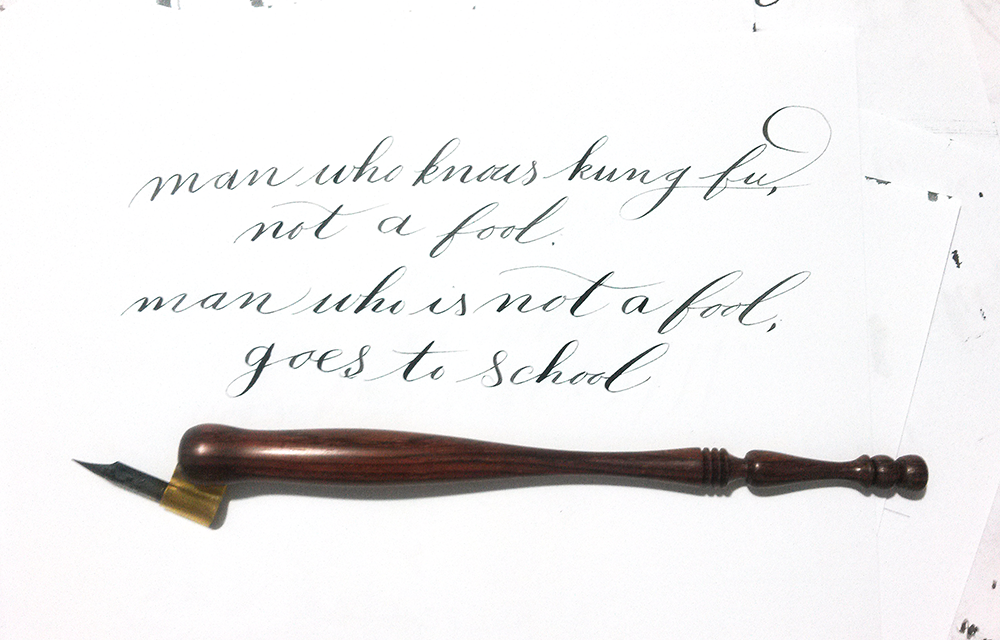 man who knows kung fu,
not a fool.
man who is not a fool,
goes to school